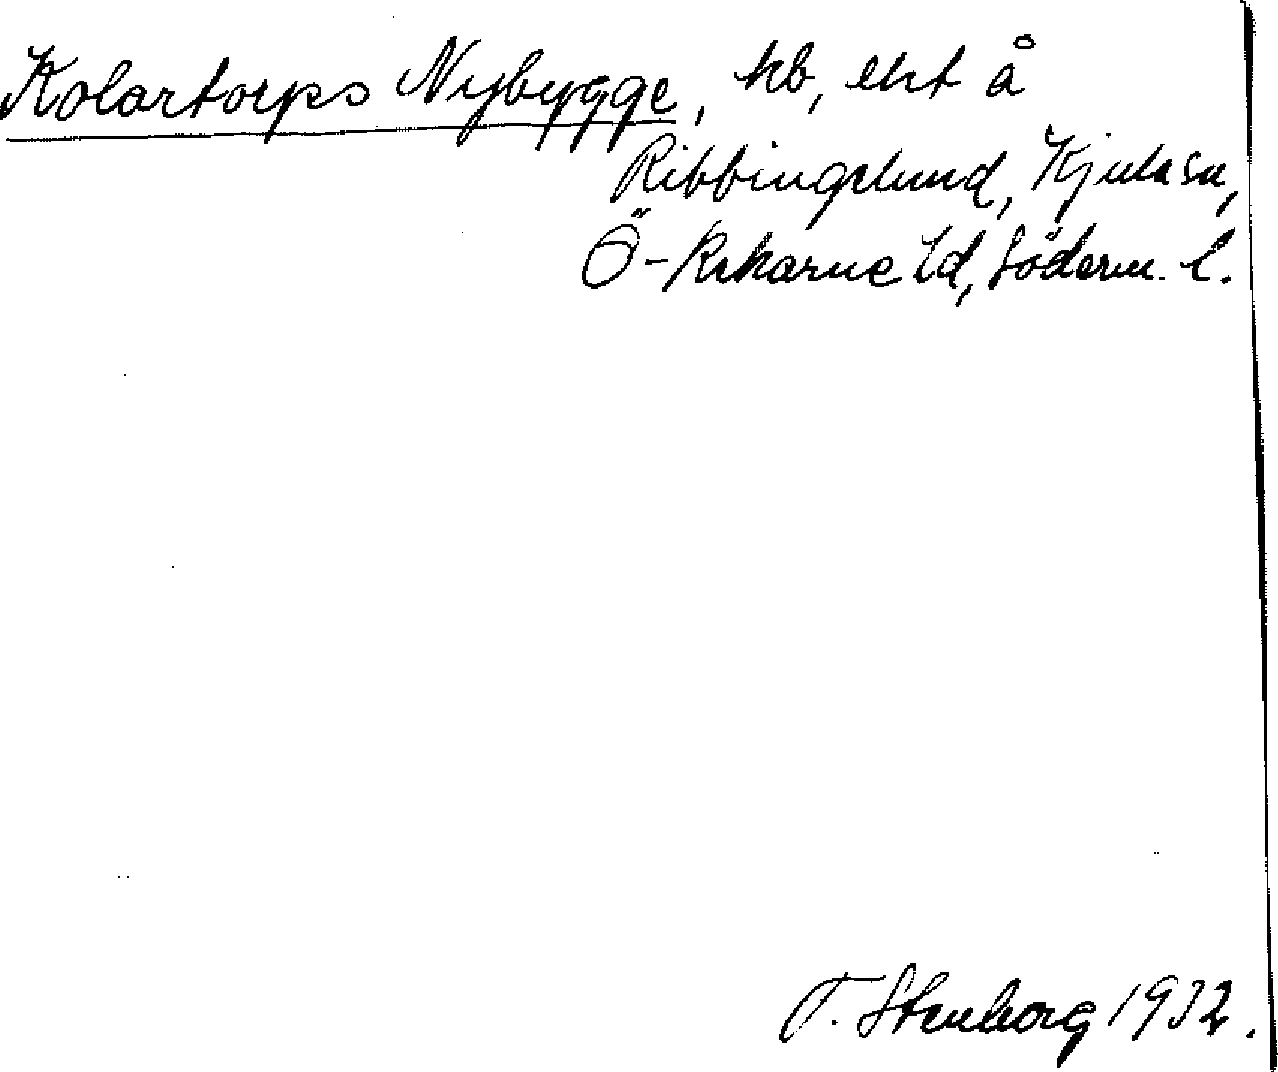 Kolartorps Nybygge, hb, eht å
Ribbingelund, Kjula sn,
Ö-Rekarne hd, Söderm. l.
T. Stenborg 1932.